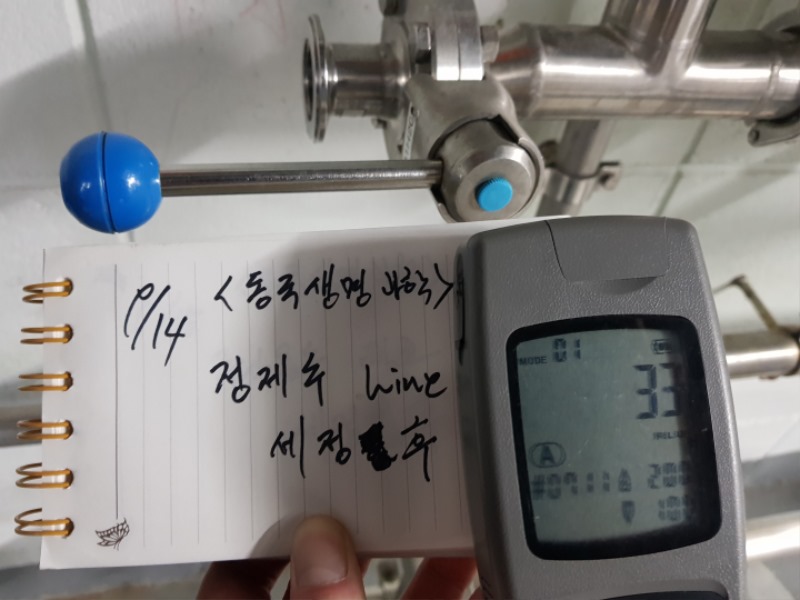 9/14 <동국생명과학>
정제수 Line
세정 후
MODE 01
33
A
200
100